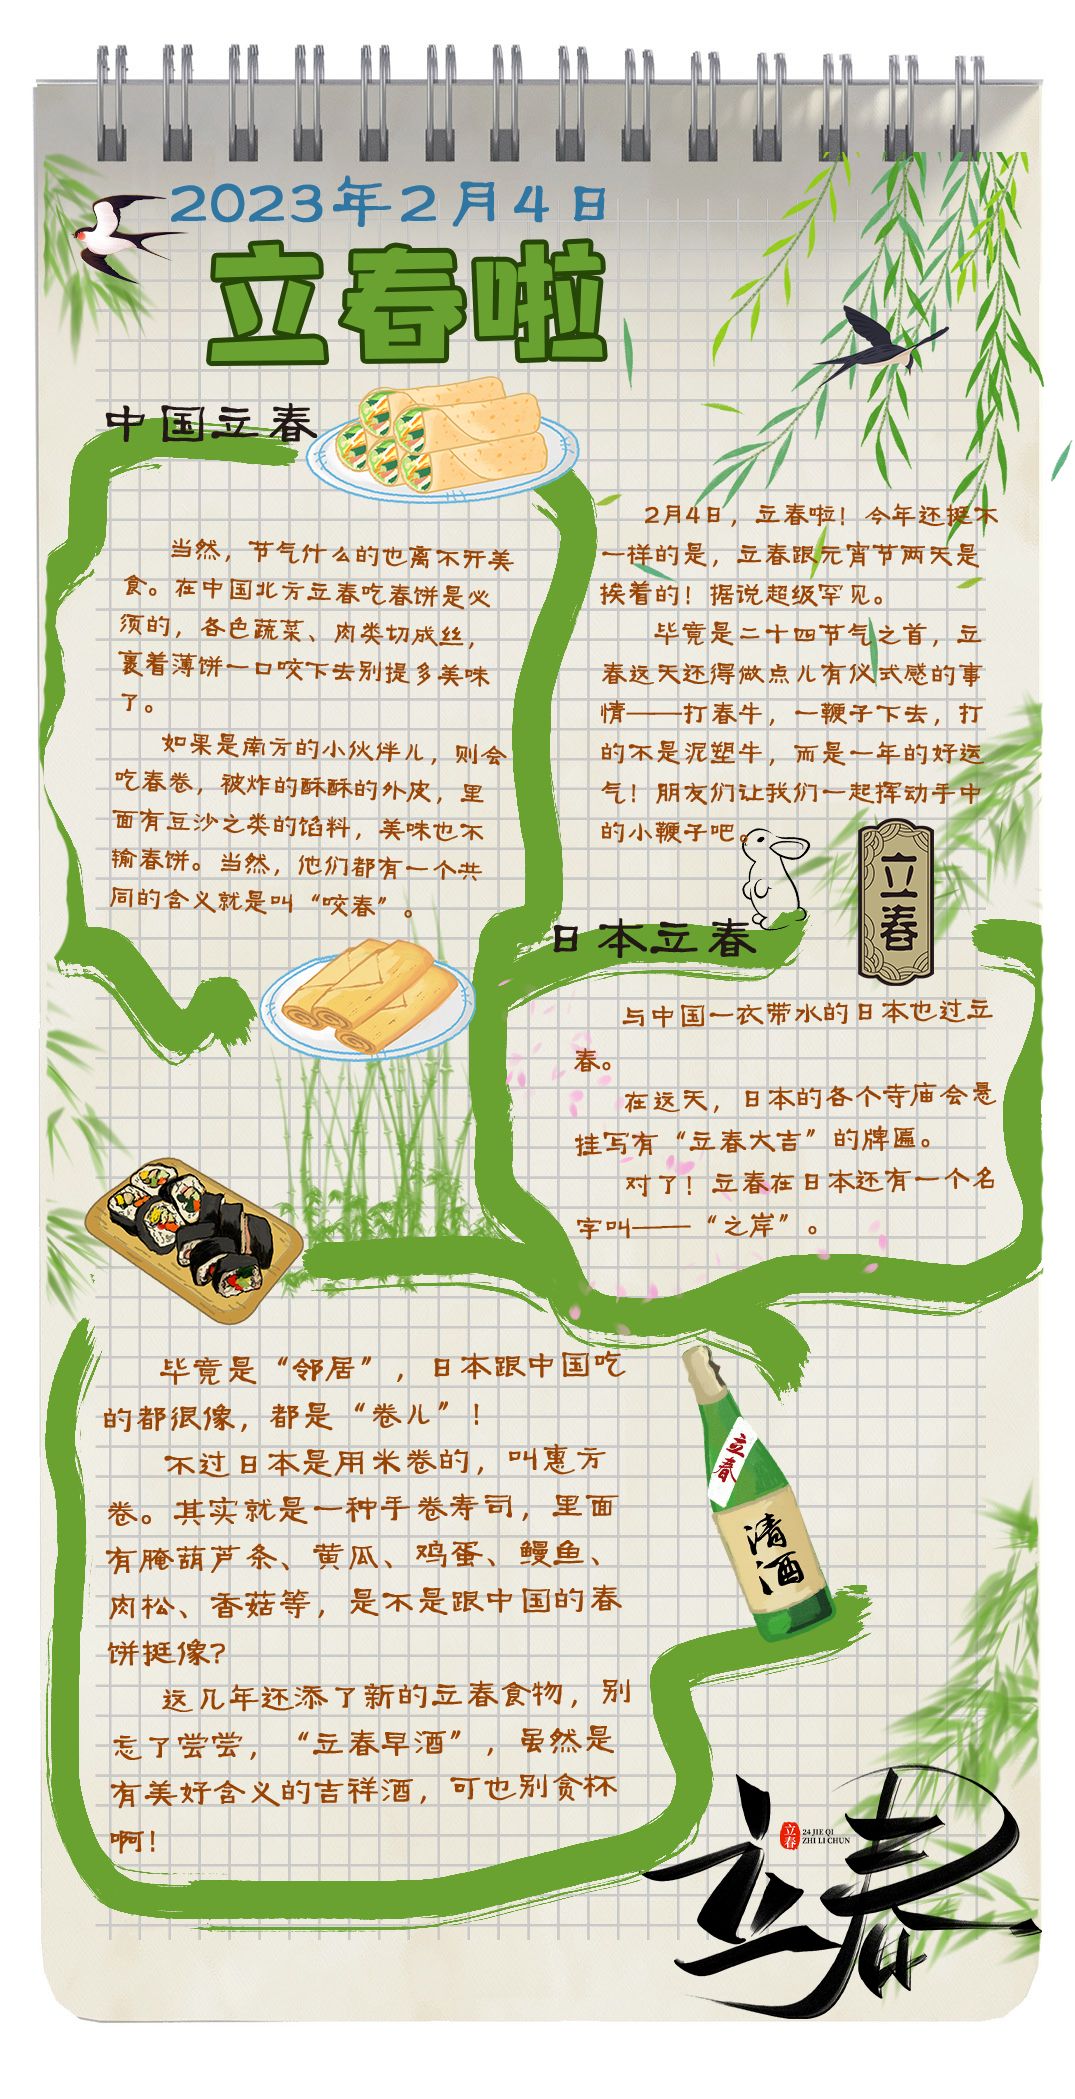 2023年2月4日
立春啦
中国立春
2月4日，立春啦！今年还挺不
一样的是，立春跟元宵节两天是
挨着的！据说超级罕见。
毕竟是二十四节气之首，立
春这天还得做点儿有仪式感的事
情——打春牛，一鞭子下去，打
的不是泥塑牛，而是一年的好运
气！朋友们让我们一起挥动手中
的小鞭子吧。
当然，节气什么的也离不开美
食。在中国北方立春吃春饼是必
须的，各色蔬菜、肉类切成丝，
裹着薄饼一口咬下去别提多美味
了。
如果是南方的小伙伴儿，则会
吃春卷，被炸的酥酥的外皮，里
面有豆沙之类的馅料，美味也不
输春饼。当然，他们都有一个共
同的含义就是叫“咬春”。
立春
日本立春
与中国一衣带水的日本也过立
春。
在这天，日本的各个寺庙会悬
挂写有“立春大吉”的牌匾。
对了！立春在日本还有一个名
字叫——“之岸”。
毕竟是“邻居”，日本跟中国吃
的都很像，都是“卷儿”！
不过日本是用米卷的，叫惠方
卷。其实就是一种手卷寿司，里面
有腌葫芦条、黄瓜、鸡蛋、鳗鱼、
肉松、香菇等，是不是跟中国的春
饼挺像？
这几年还添了新的立春食物，别
忘了尝尝，“立春早酒”，虽然是
有美好含义的吉祥酒，可也别贪杯
啊！
立春
清酒
立春
立春
24 JIE QI
ZHI LI CHUN